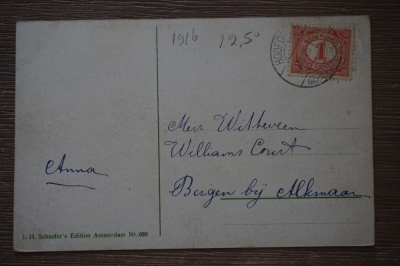 1916 12,5°
HOOFD
1
Mevr Witteveen
Williams Court
Bergen bij Alkmaar
Anna
H. Schaefer's Edition Amsterdam Nr.